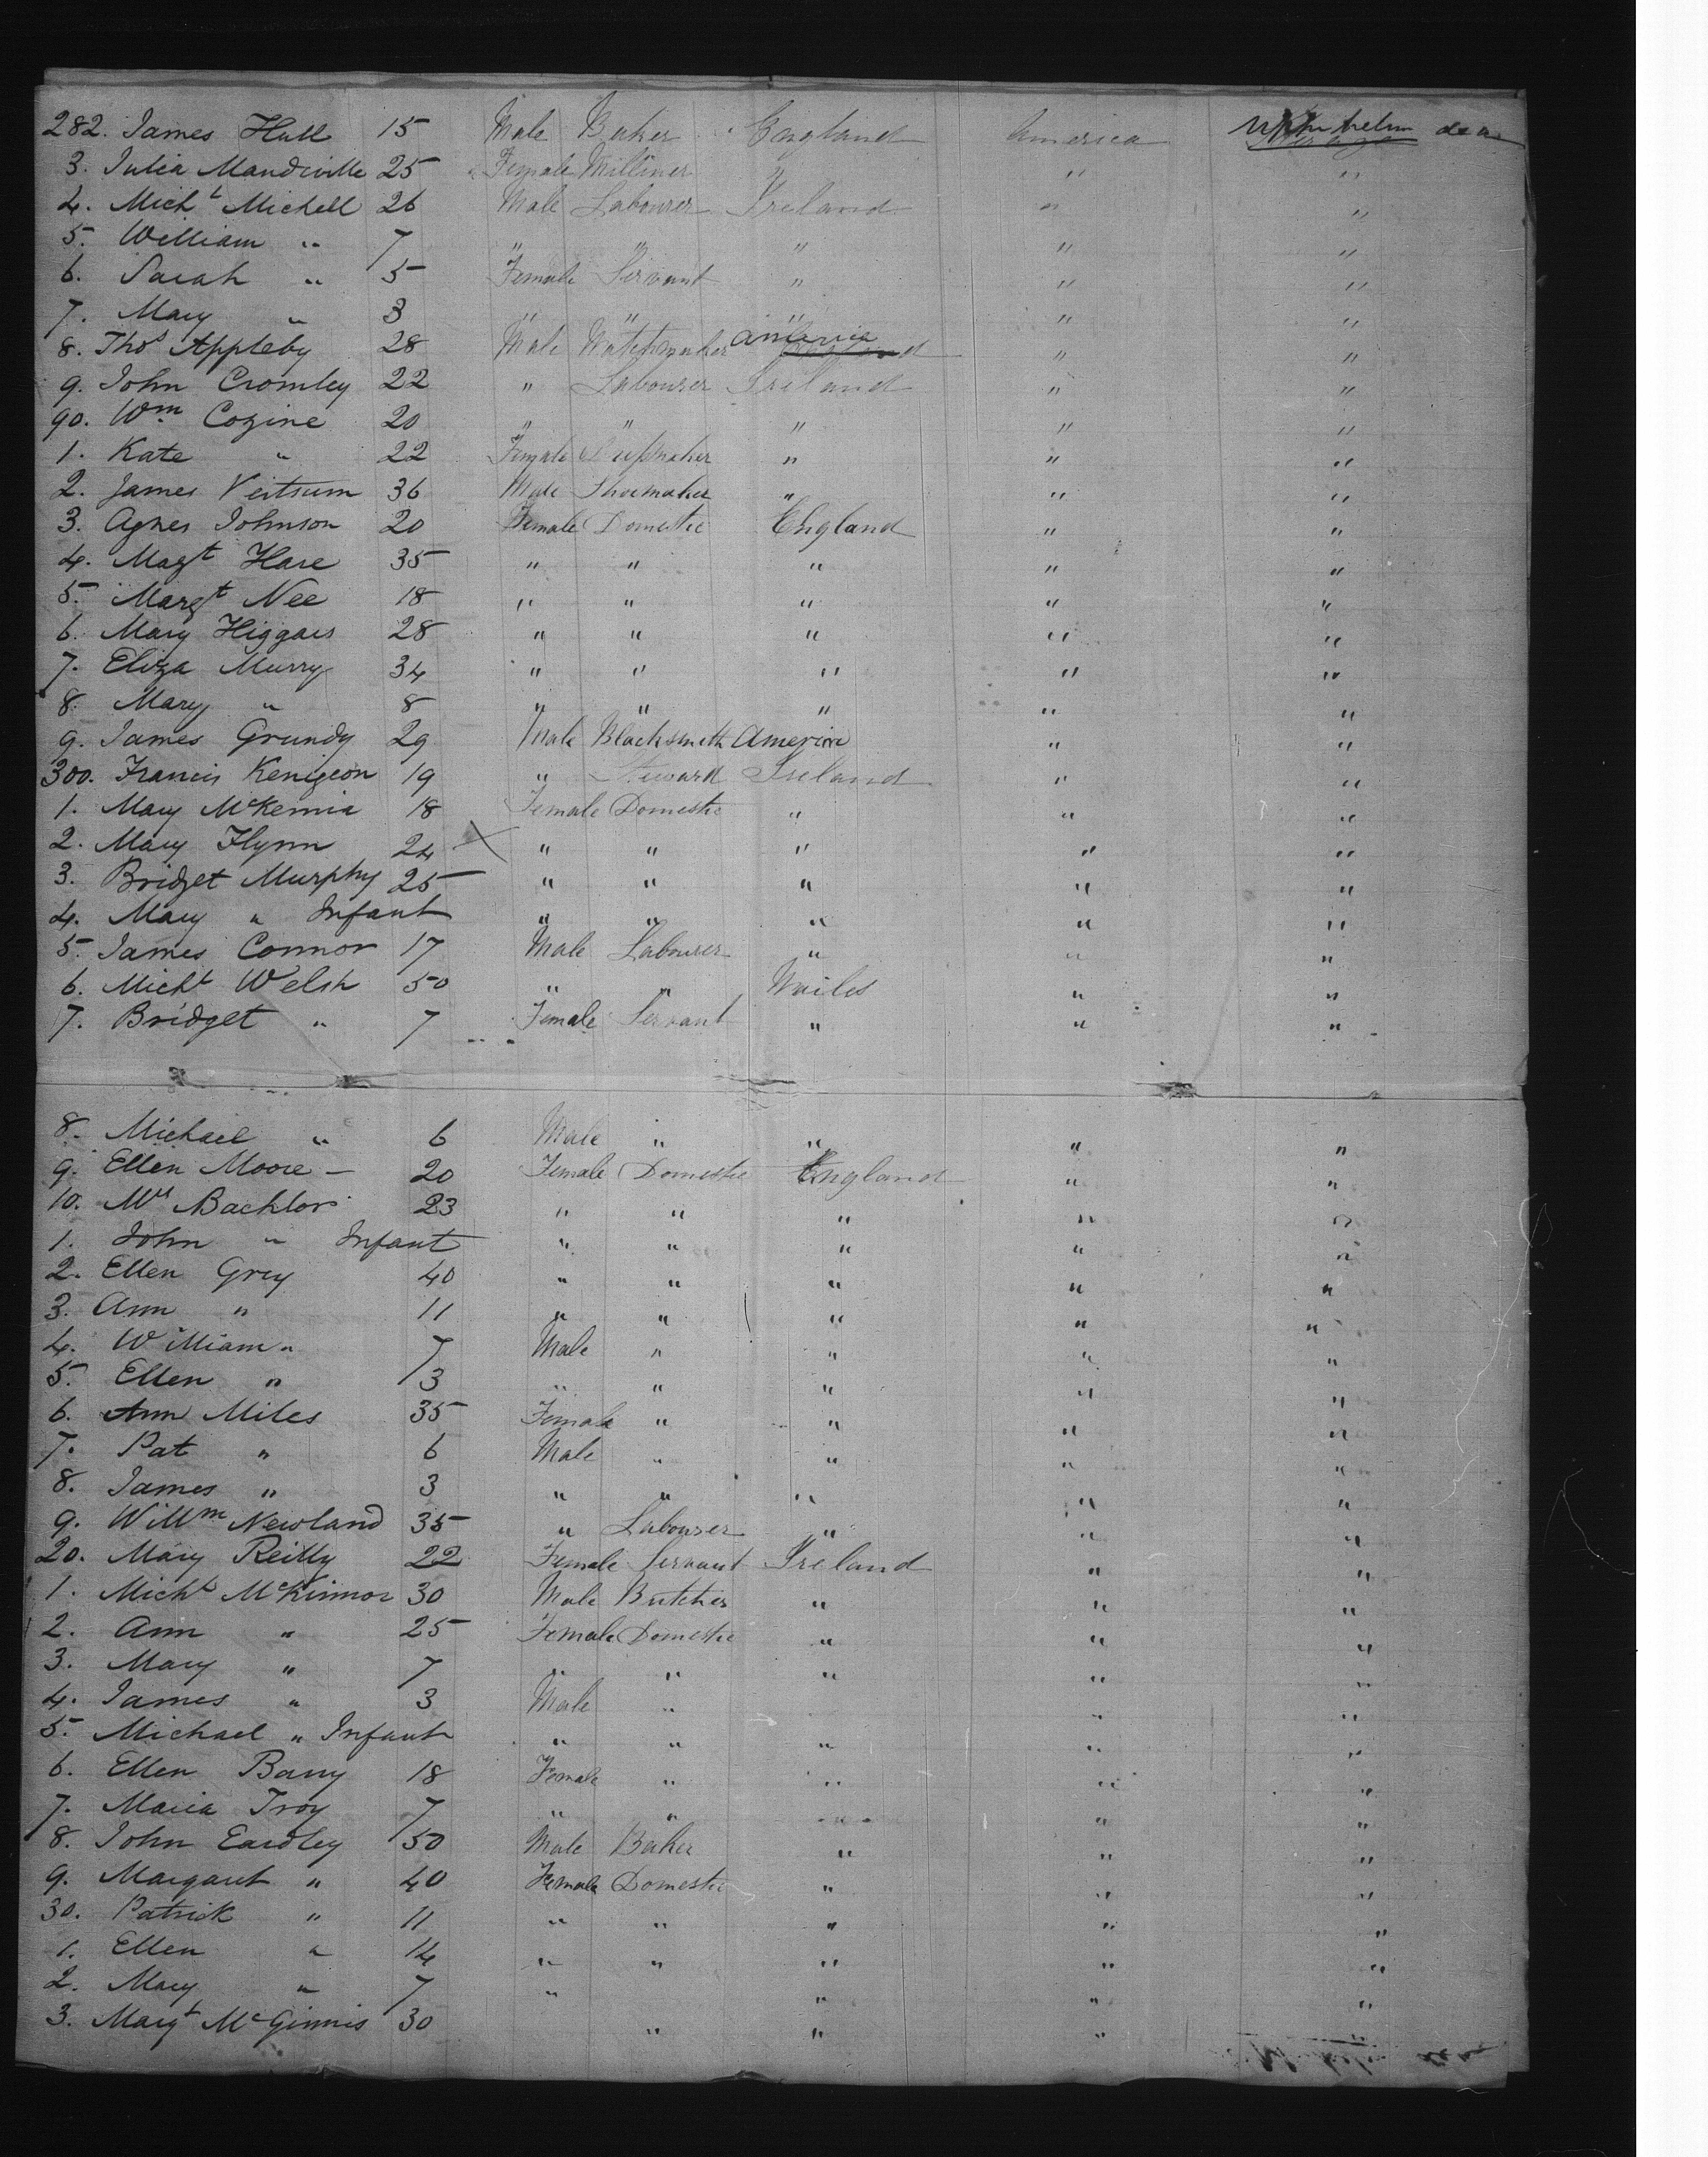 282. James Hull 15 Male Baker England America
3. Julia Mandiville 25 Female Milliner " " "
4. Mich^l Michell 26 Male Labourer Ireland " "
5. William " 7 " " " " "
6. Sarah " 5 Female Servant " " "
7. Mary " 3 " " " " "
8. Tho^s Appleby 28 Male Watchmaker America England " "
9. John Cromley 22 " Labourer Ireland " "
90. W^m Cozine 20 " " " " "
1. Kate " 22 Female " " "
2. James Veitsum 36 Male Shoemaker " " "
3. Agnes Johnson 20 Female Domestic England " "
4. Mag^t Hare 35 " " " " "
5. Marg^t Nee 18 " " " " "
6. Mary Higgans 28 " " " " "
7. Eliza Murry 34 " " " " "
8. Mary " 8 " " " " "
9. James Grundy 29 Male Blacksmith America " "
300. Francis Kenigeon 19 " Steward Ireland " "
1. Mary McKernia 18 Female Domestic " " "
2. Mary Flynn 24 X " " " " "
3. Bridget Murphy 25 " " " " "
4. Mary " Infant " " " " "
5. James Connor 17 Male Labourer " " "
6. Mich^l Welsh 50 " " Wailes " "
7. Bridget " 7 Female Servant " " "
8. Michael " 6 Male " " " "
9. Ellen Moore - 20 Female Domestic England " "
10. M^rs Bachlor 23 " " " " "
1. John " Infant " " " " "
2. Ellen Grey 40 " " " " "
3. Ann " 11 " " " " "
4. William " 7 Male " " " "
5. Ellen " 3 " " " " "
6. Ann Miles 35 Female " " " "
7. Pat " 6 Male " " " "
8. James " 3 " " " " "
9. Will^m Newland 35 " Labourer " " "
20. Mary Reilly 22 Female Servant Ireland " "
1. Mich^l McKinnor 30 Male Butcher " " "
2. Ann " 25 Female Domestic " " "
3. Mary " 7 " " " " "
4. James " 3 Male " " "
5. Michael " Infant " " " " "
6. Ellen Barry 18 Female " " " "
7. Maria Troy 7 " " " " "
8. John Eardley 50 Male Baker " " "
9. Margaret " 40 Female Domestic " " "
30. Patrick " 11 " " " " "
1. Ellen " 14 " " " " "
2. Mary " 7 " " " "
3. Marg^t McGinnis 30 " " "